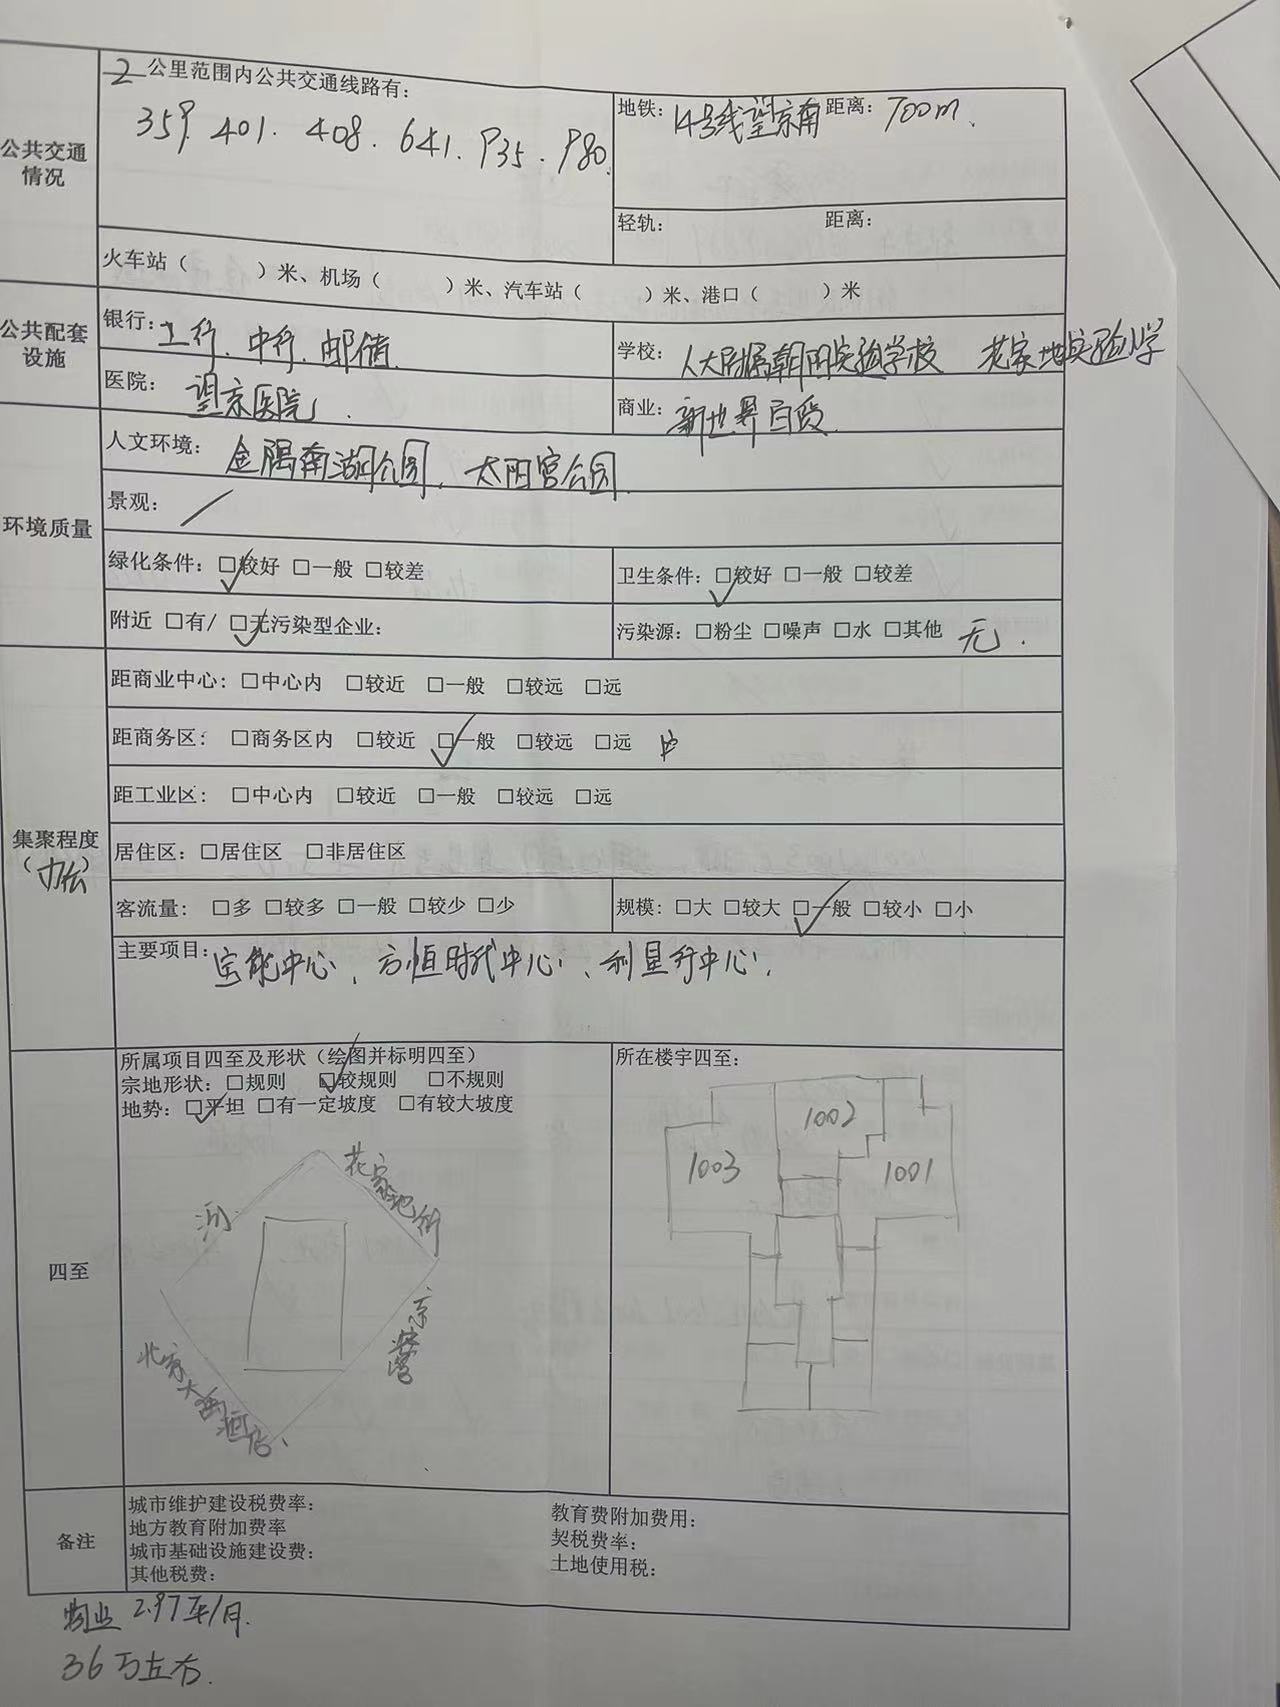 2 公里范围内公共交通线路有:
359. 401. 408. 641. 935. 980.
地铁: 14号线望京南 距离: 700m.
公共交通情况
轻轨: 距离:
火车站（ ）米、机场（ ）米、汽车站（ ）米、港口（ ）米
公共配套设施
银行: 工行、中行、邮储.
学校: 人大附属朝阳实验学校 花家地实验小学
医院: 望京医院.
商业: 新世界百货.
环境质量
人文环境: 金隅南湖公园、太阳宫公园.
景观: /
绿化条件: ☑较好 □一般 □较差
卫生条件: ☑较好 □一般 □较差
附近 □有/ ☑无污染型企业:
污染源: □粉尘 □噪声 □水 □其他 无.
集聚程度
（办公）
距商业中心: □中心内 □较近 □一般 □较远 □远
距商务区: □商务区内 □较近 ☑一般 □较远 □远
距工业区: □中心内 □较近 □一般 □较远 □远
居住区: □居住区 □非居住区
客流量: □多 □较多 □一般 □较少 □少
规模: □大 □较大 ☑一般 □较小 □小
主要项目: 宝能中心、方恒时代中心、利星行中心.
四至
所属项目四至及形状（绘图并标明四至）
宗地形状: □规则 ☑较规则 □不规则
地势: ☑平坦 □有一定坡度 □有较大坡度
河
花家地街
京密
北京大西酒店.
所在楼宇四至:
1002
1003
1001
备注
城市维护建设税费率:
教育费附加费用:
地方教育附加费率
契税费率:
城市基础设施建设费:
土地使用税:
其他税费:
物业 2.97元/月.
36万左右.